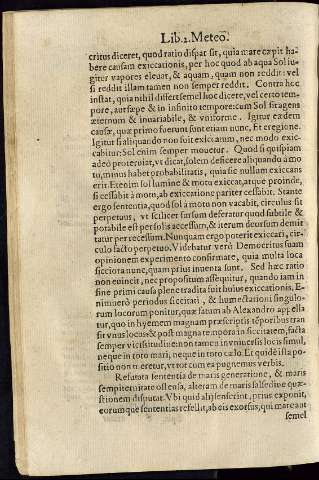 Lib. 2. Meteo.
critus diceret, quod ratio dispar sit, quia mare cœpit ha-
bere causam exiccationis, per hoc quod ab aqua Sol iu-
giter vapores eleuat, & aquam, quam non reddit: vel
si reddit illam tamen non semper reddit. Contra hoc
instat, quia nihil differt semel hoc dicere, vel certo tem-
pore, aut sæpe & in infinito tempore: cum Sol sit agens
æternum & inuariabile, & vniforme. Igitur eædem
causæ, quæ primo fuerunt sunt etiam nunc, Et è regione.
Igitur si aliquando non fuit exiccatum, nec modo exic-
cabitur; Sol enim semper mouetur. Quod si quispiam
adeò proteruiat, vt dicat, solem deficere aliquando à mo
tu, minus habet probabilitatis, quia sic nullum exiccans
erit. Etenim sol lumine & motu exiccat, atque proinde,
si cessabit à motu, ab exiccatione pariter cessabit. Stante
ergo sententia, quod sol à motu non vacabit, circulus sit
perpetuus, vt scilicet sursum deferatur quod subtile &
potabile est per solis accessum, & iterum deursum demit
tatur per recessum. Nunquam ergo poterit exiccari, cir-
culo facto perpetuo. Videbatur verò Democritus suam
opinionem experimento confirmare, quia multa loca
sicciora nunc, quam prius inuenta sunt. Sed hæc ratio
non euincit, nec propositum assequitur, quando iam in
fine primi causa plene tradita fuit huius exiccationis. E-
nimuerò periodus siccitati, & humectationi singulo-
rum locorum ponitur, quæ satum ab Alexandro appella
tur, quo in hyemem magnam præscriptis tēporibus tran
sit vnus locus & post magna tempora in siccitatem, facta
semper vicissitudine: non tamen in vniuersis locis simul,
neque in toto mari, neque in toto cælo. Et quidē illa po-
sitio non tereretur, vt tot cum ea pugnemus verbis.
Refutata sententia de maris generatione, & maris
sempiternitate ostensa, alteram de maris salsedine quæ-
stionem disputat. Vbi quid alij senserint, prius exponit,
eorumque sententias refellit, ab eis exorsus, qui mare aut
semel